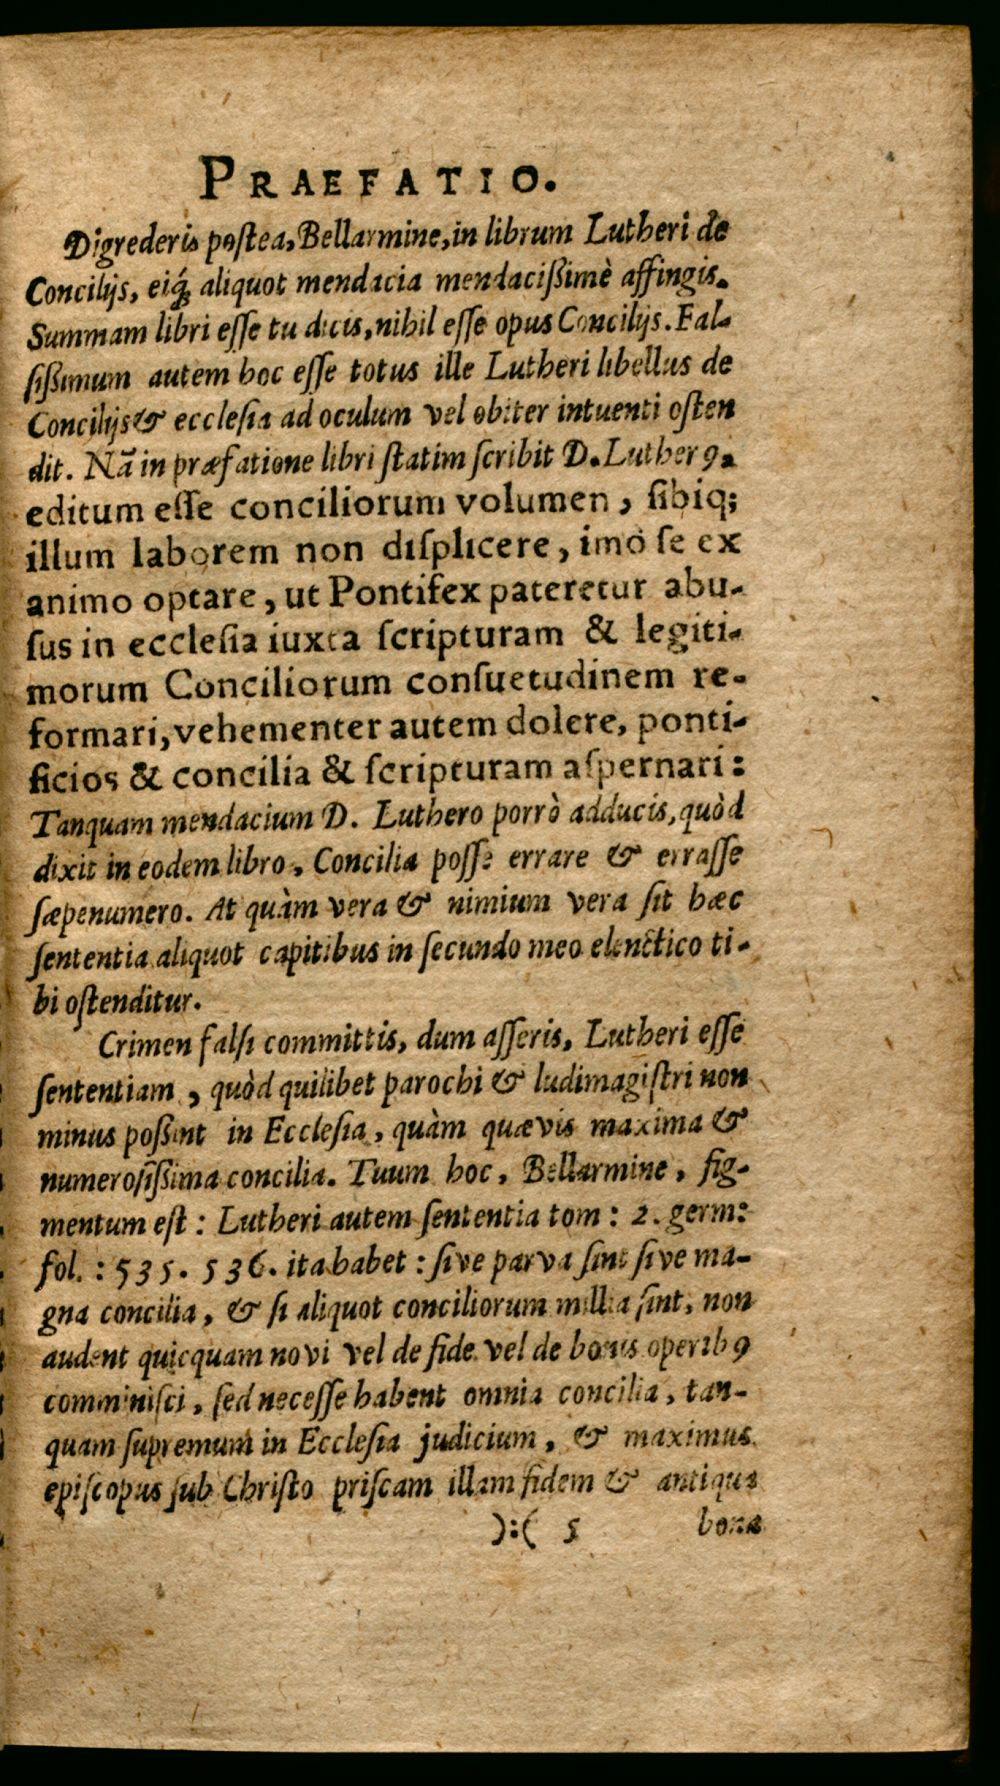 PRAEFATIO.
Digrederis postea, Bellarmine, in librum Lutheri de
Concilijs, eiq́; aliquot mendacia mendacißimè affingis.
Summam libri eſſe tu dicis, nihil eſſe opus Concilijs. Fal-
ſißimum autem hoc eſſe totus ille Lutheri libellus de
Concilijs & eccleſia ad oculum vel obiter intuenti oſten
dit. Nã in præfatione libri ſtatim ſcribit D. Lutherꝯ.
editum eſſe conciliorum volumen, ſibiq;
illum laborem non diſplicere, imò ſe ex
animo optare, ut Pontifex pateretur abu-
ſus in eccleſia iuxta ſcripturam & legiti-
morum Conciliorum conſuetudinem re-
formari, vehementer autem dolere, ponti-
ficios & concilia & ſcripturam aſpernari:
Tanquam mendacium D. Luthero porrò adducis, quòd
dixit in eodem libro, Concilia poſſe errare & erraſſe
ſæpenumero. At quàm vera & nimium vera ſit hæc
ſententia aliquot capitibus in ſecundo meo elenctico ti-
bi oſtenditur.
Crimen falſi committis, dum aſſeris, Lutheri eſſe
ſententiam, quòd quilibet parochi & ludimagiſtri non
minus poßint in Eccleſia, quàm quævis maxima &
numeroſißima concilia. Tuum hoc, Bellarmine, fig-
mentum eſt: Lutheri autem ſententia tom: 2. germ:
fol.: 535. 536. ita habet: ſive parva ſint ſive ma-
gna concilia, & ſi aliquot conciliorum millia ſint, non
audent quicquam novi vel de fide vel de bonis operibꝯ
comminiſci, ſed neceſſe habent omnia concilia, tan-
quam ſupremum in Eccleſia judicium, & maximus
epiſcopus ſub Chriſto priſcam illam fidem & antiqua
):( 5 bona